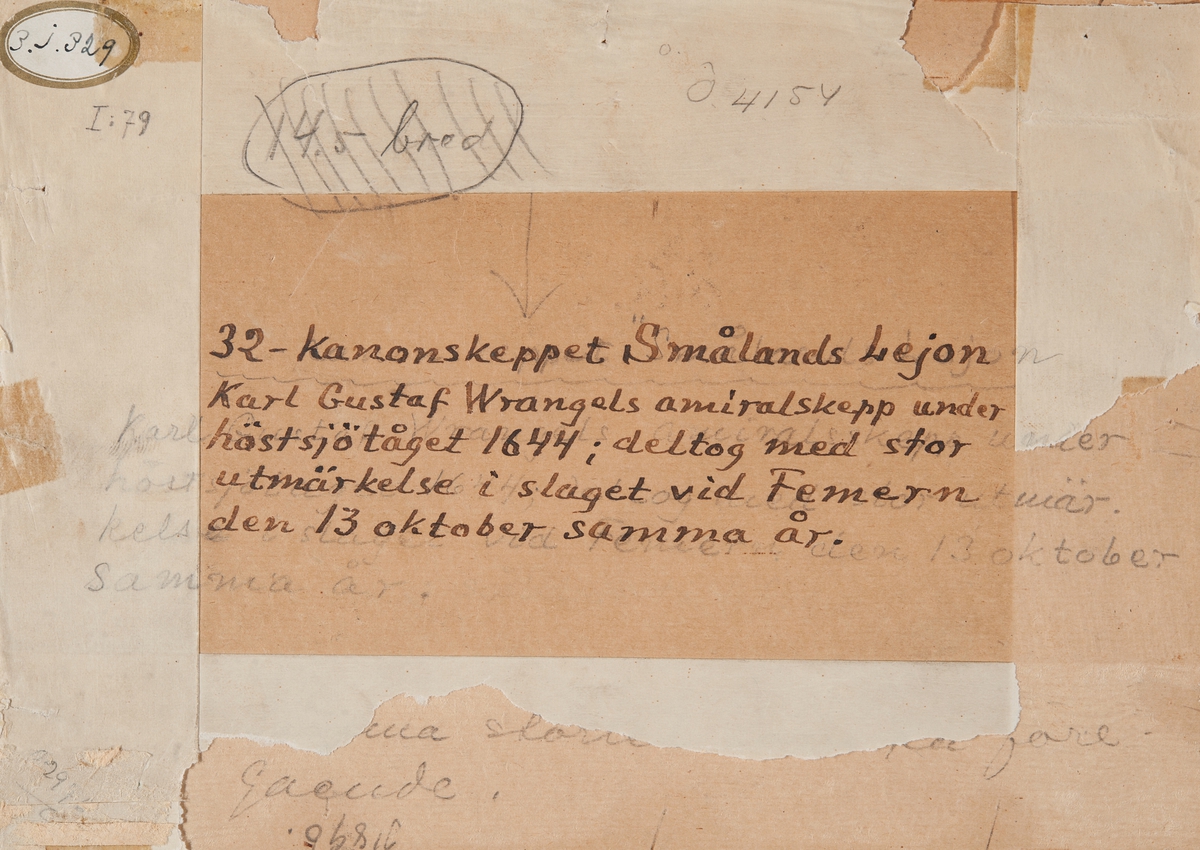 3.J.329
I:79
14.5 bred
4154
32-kanonskeppet "Smålands Lejon
Karl Gustaf Wrangels amiralskepp under
höstsjötåget 1644; deltog med stor
utmärkelse i slaget vid Femern
den 13 oktober samma år.
Karl under
höst utmär.
kelse i slaget vid Femern den 13 oktober
samma år.
ma före-
gående.